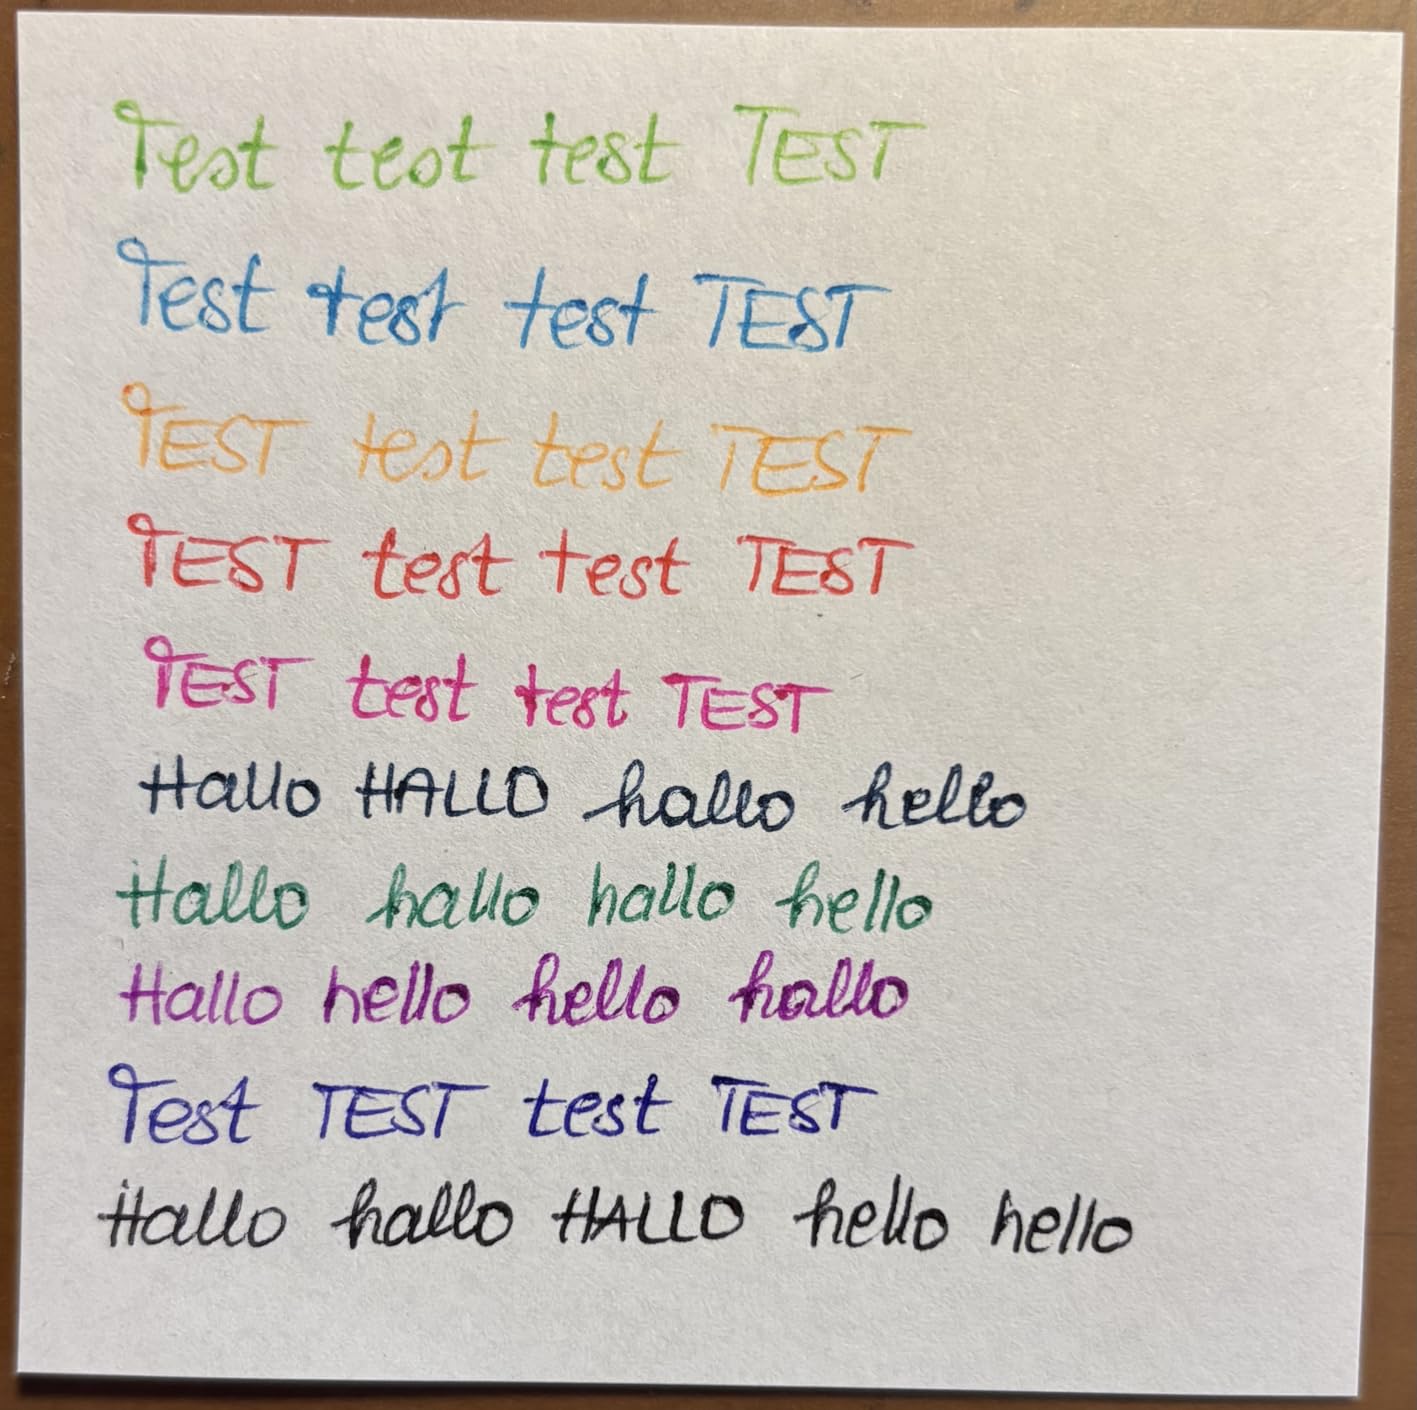 Test test test TEST
Test test test TEST
TEST test test TEST
TEST test test TEST
TEST test test TEST
Hallo HALLO hallo hello
Hallo hallo hallo hello
Hallo hello hello hallo
Test TEST test TEST
Hallo hallo HALLO hello hello